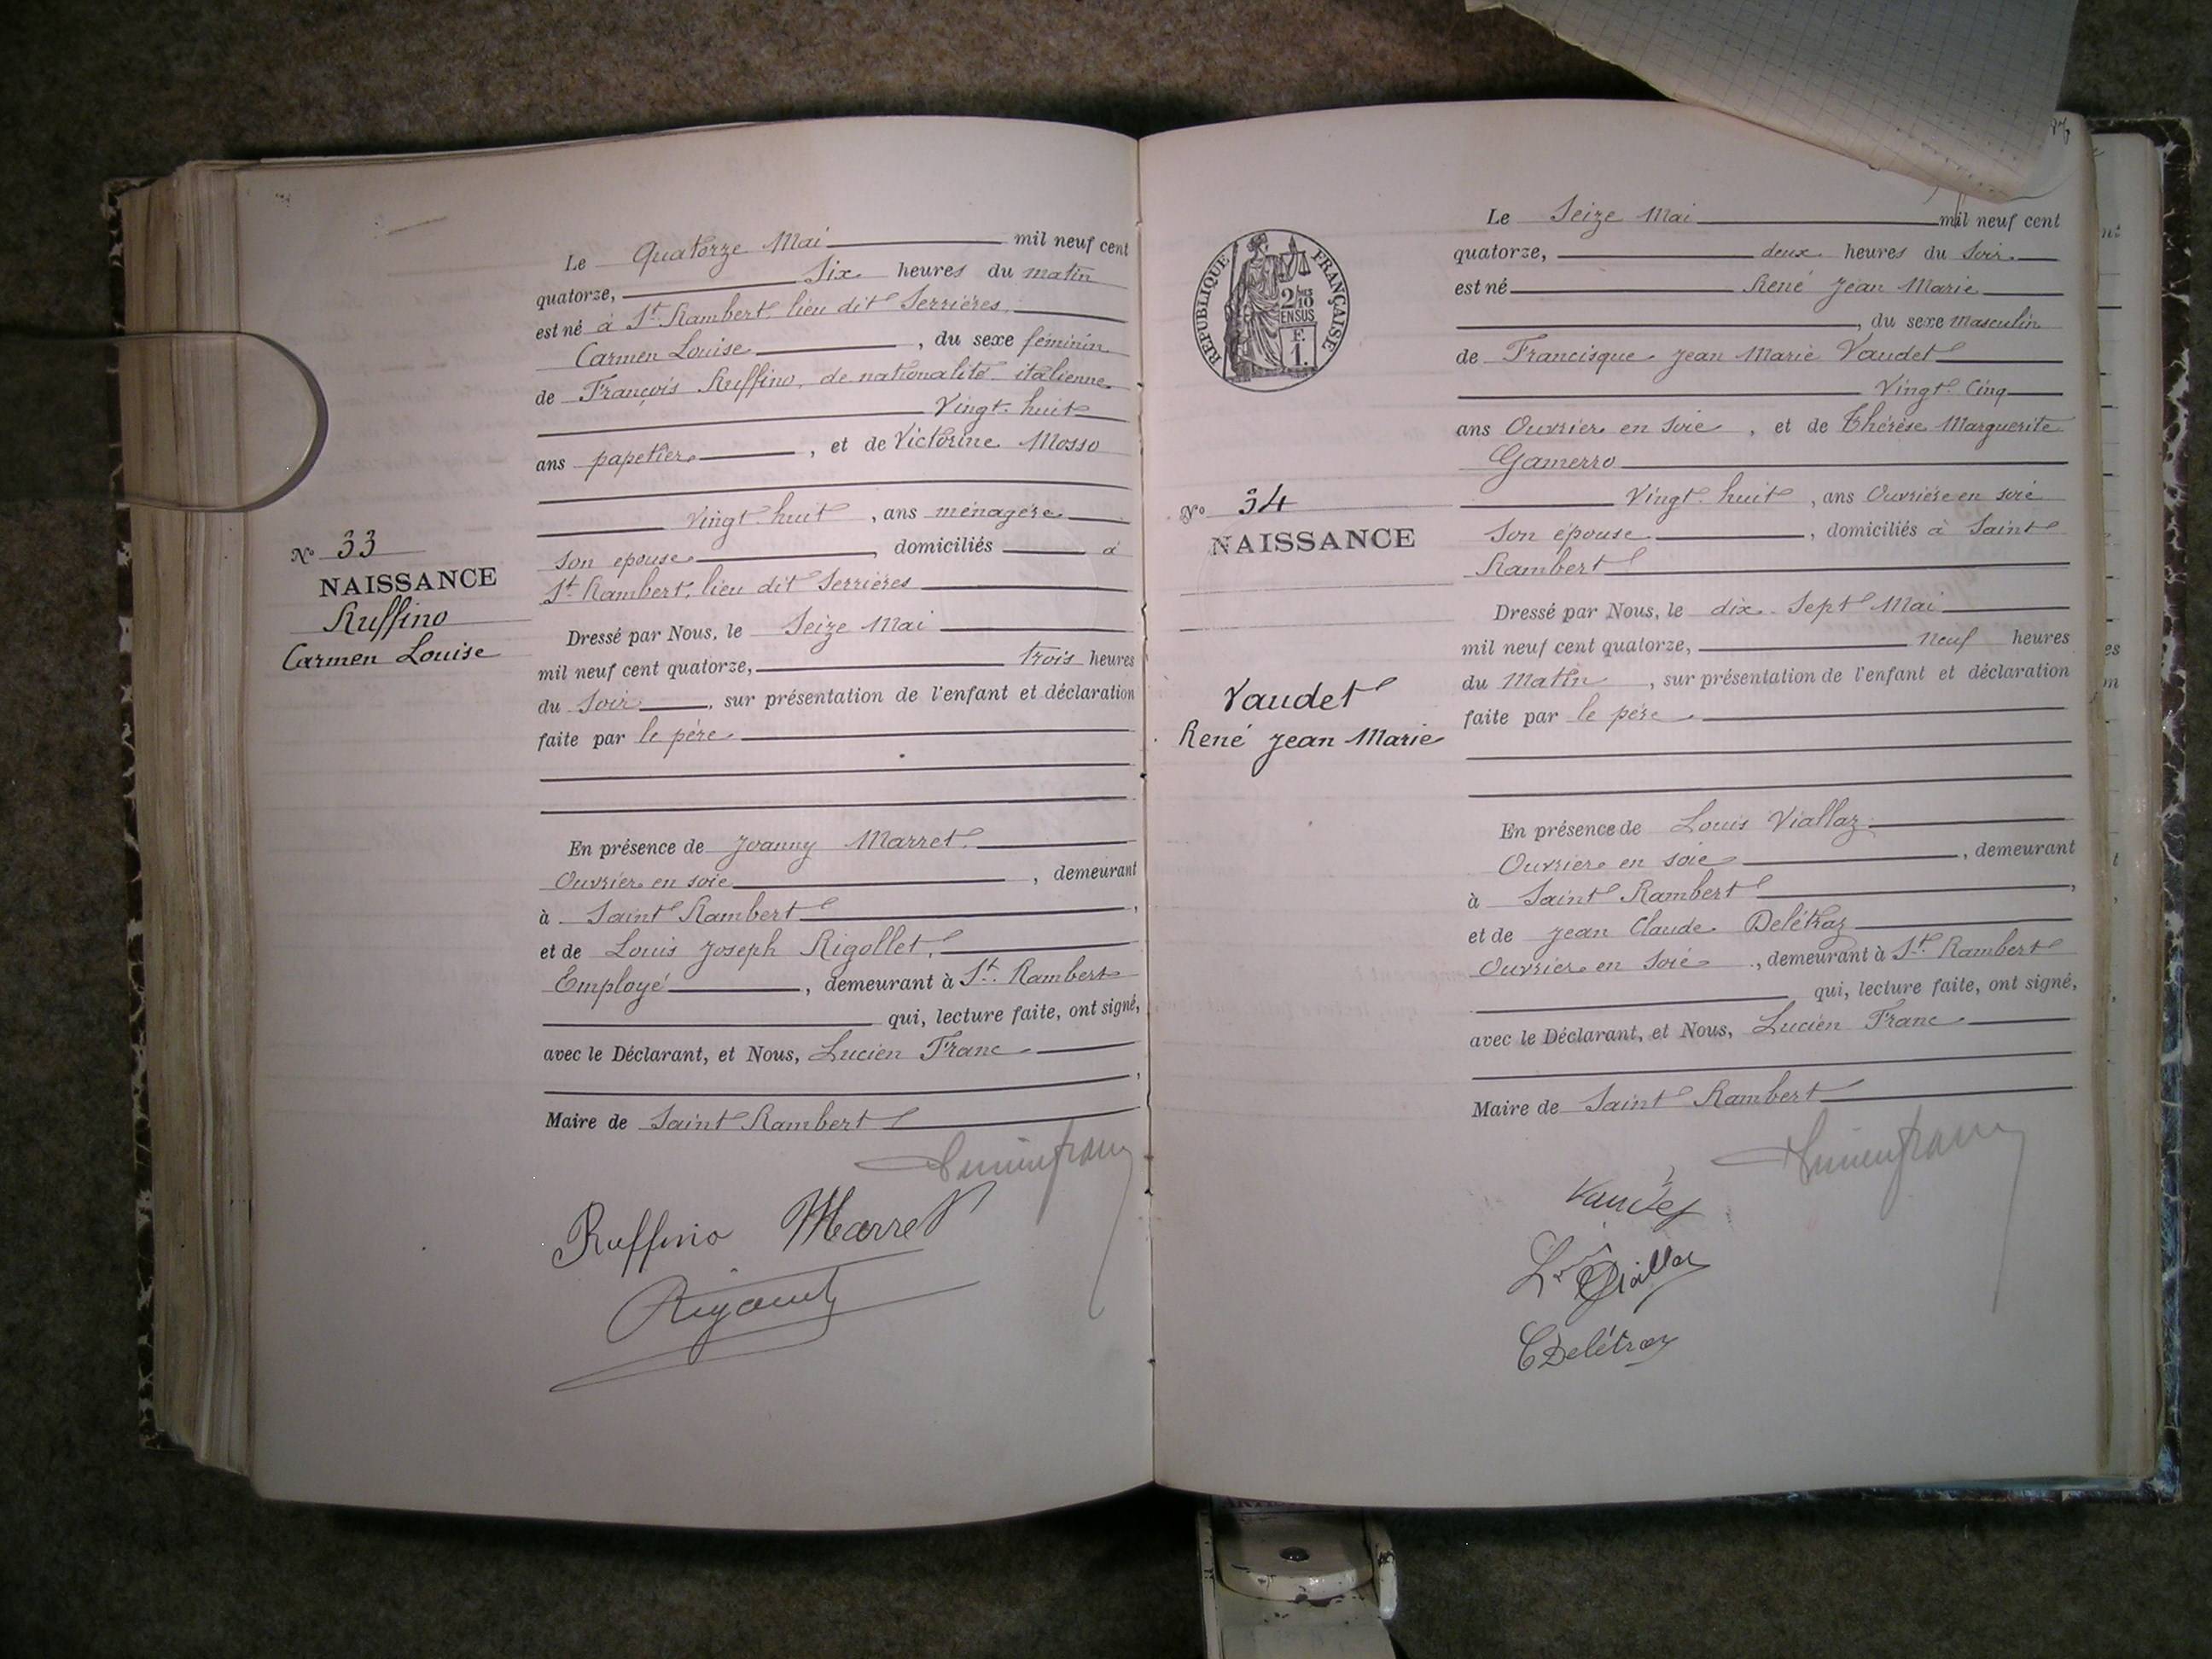 Le Quatorze Mai mil neuf cent
quatorze, Six heures du matin
est né à St. Rambert, lieu dit Serrières
Carmen Louise, du sexe féminin
de François Ruffino, de nationalité italienne
Vingt-huit
ans papetier, et de Victorine Mosso
Vingt-huit, ans ménagère
son epouse, domiciliés à
St. Rambert, lieu dit Serrières
Dressé par Nous, le Seize Mai
mil neuf cent quatorze, trois heures
du Soir, sur présentation de l'enfant et déclaration
faite par le père
En présence de Joanny Marret
Ouvrier en soie, demeurant
à Saint Rambert,
et de Louis Joseph Rigollet,
Employé, demeurant à St. Rambert
qui, lecture faite, ont signé,
avec le Déclarant, et Nous, Lucien Franc
,
Maire de Saint Rambert
Ruffino Marret
No 33
NAISSANCE
Ruffino
Carmen Louise
REPUBLIQUE FRANÇAISE
2/10
EN SUS
F.
1.
No 34
NAISSANCE
Vaudet
René Jean Marie
Le Seize Mai mil neuf cent
quatorze, deux heures du Soir
est né René Jean Marie
, du sexe Masculin
de Francisque Jean Marie Vaudet
Vingt-Cinq
ans Ouvrier en Soie, et de Thérèse Marguerite
Gamerro
Vingt-huit, ans Ouvrière en soie
Son épouse, domiciliés à Saint
Rambert
Dressé par Nous, le dix-Sept Mai
mil neuf cent quatorze, neuf heures
du Matin, sur présentation de l'enfant et déclaration
faite par le père
En présence de Louis Viallaz
Ouvrier en soie, demeurant
à Saint Rambert,
et de Jean Claude Delétraz
Ouvrier en Soie, demeurant à St. Rambert
qui, lecture faite, ont signé,
avec le Déclarant, et Nous, Lucien Franc
Maire de Saint Rambert
Vaudet
C Delétraz